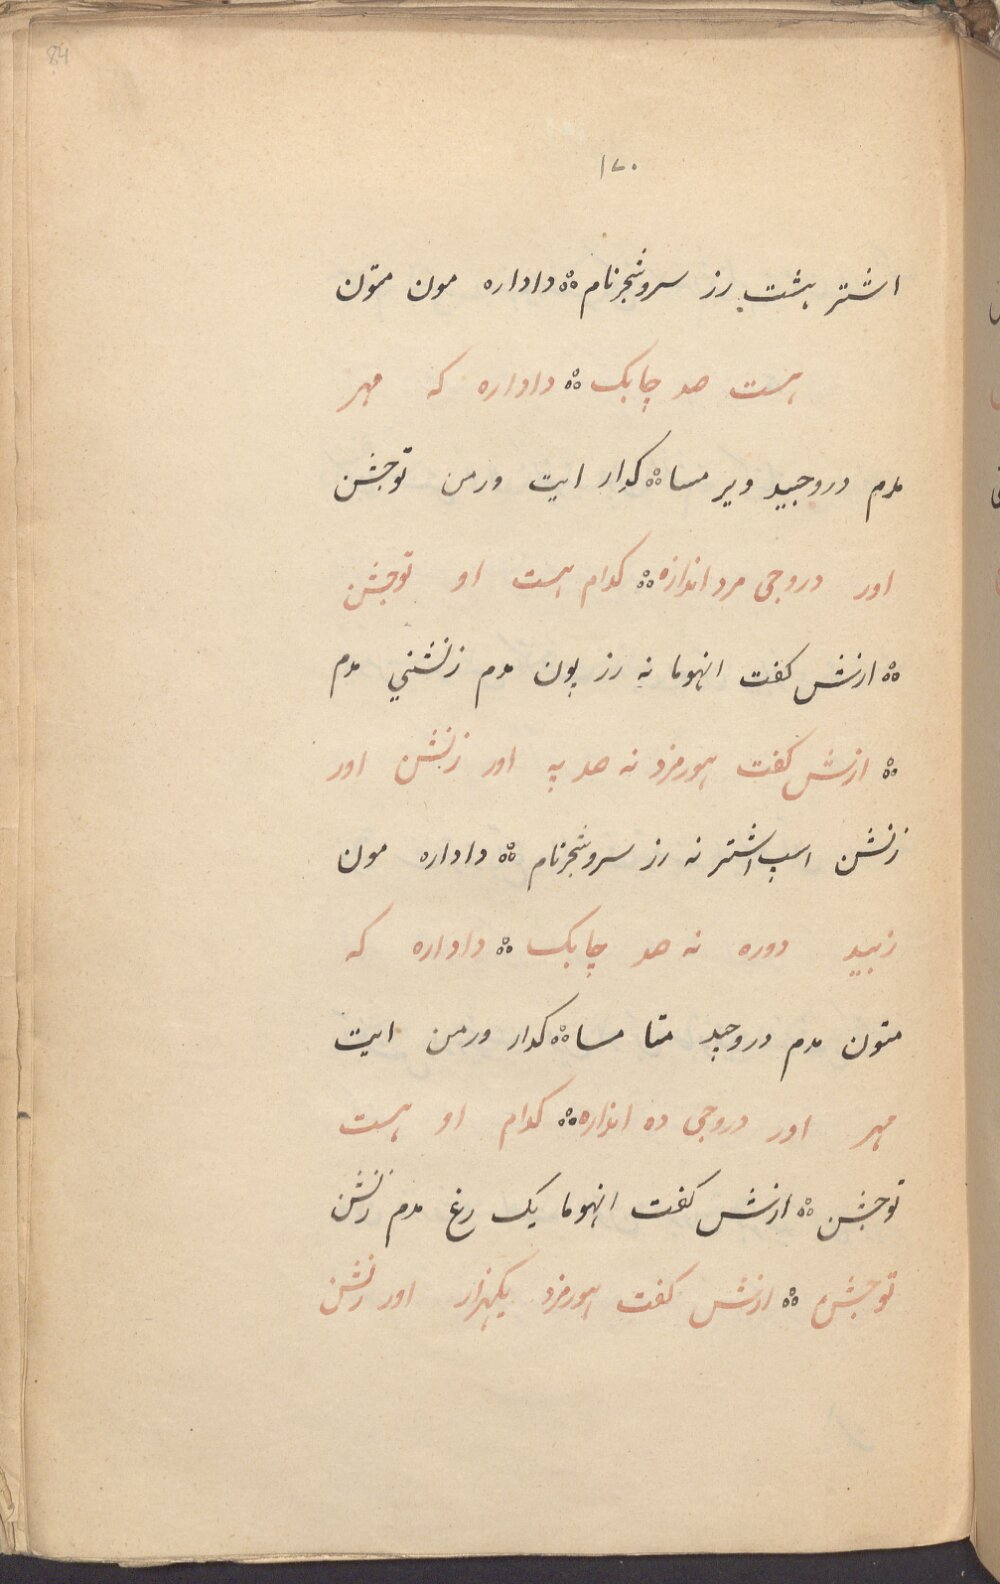 84
١٧٠
اشتر هشت رز سروشجرنام ؞ داداره مون متون
هست صد چابک ؞ داداره که مهر
مدم دروجید ویر مسا ؞ کدار ایت ورمن توجشن
اور دروجی مرد اندازه ؞ کدام هست او توجشن
؞ ازش کفت انهوما نه رز پون مدم زنشنی مدم
؞ ازش کفت هورمزد نه صد په اور زنشن اور
زنشن اسپ اشتر نه رز سروشجرنام ؞ داداره مون
زبید دوره نه صد چابک ؞ داداره که
متون مدم دروجید متا مسا ؞ کدار ورمن ایت
مهر اور دروجی ده اندازه ؞ کدام او هست
توجشن ؞ ازش کفت انهوما یک رغ مدم زنشن
توجشن ؞ ازش کفت هورمزد یکهزار اور زنشن